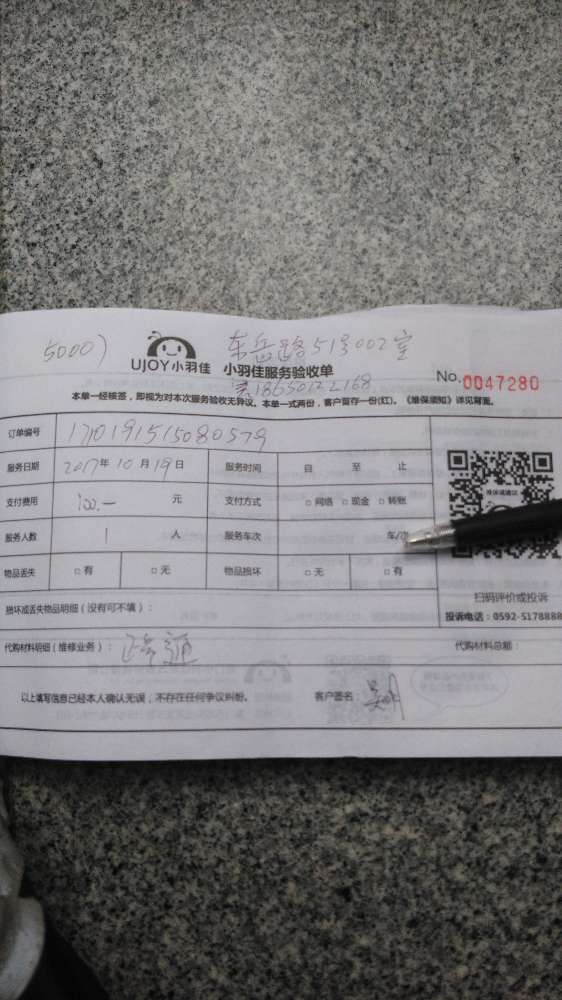 5000) 东岳路51号002室
UJOY小羽佳 小羽佳服务验收单 No.0047280
吴18650122168
本单一经核签，即视为对本次服务验收无异议。本单一式两份，客户留存一份(红)。《维保须知》详见背面。
订单编号 1710191515080579
服务日期 2017年10月19日 服务时间 自 至 止
投诉或建议
支付费用 100.— 元 支付方式 □网络 □现金 □转账
服务人数 1 人 服务车次 车/次
物品丢失 □有 □无 物品损坏 □无 □有
扫码评价或投诉
损坏或丢失物品明细（没有可不填）：
投诉电话：0592-5178888
代购材料明细（维修业务）： 疏通 代购材料总额：
以上填写信息已经本人确认无误，不存在任何争议纠纷。 客户签名：